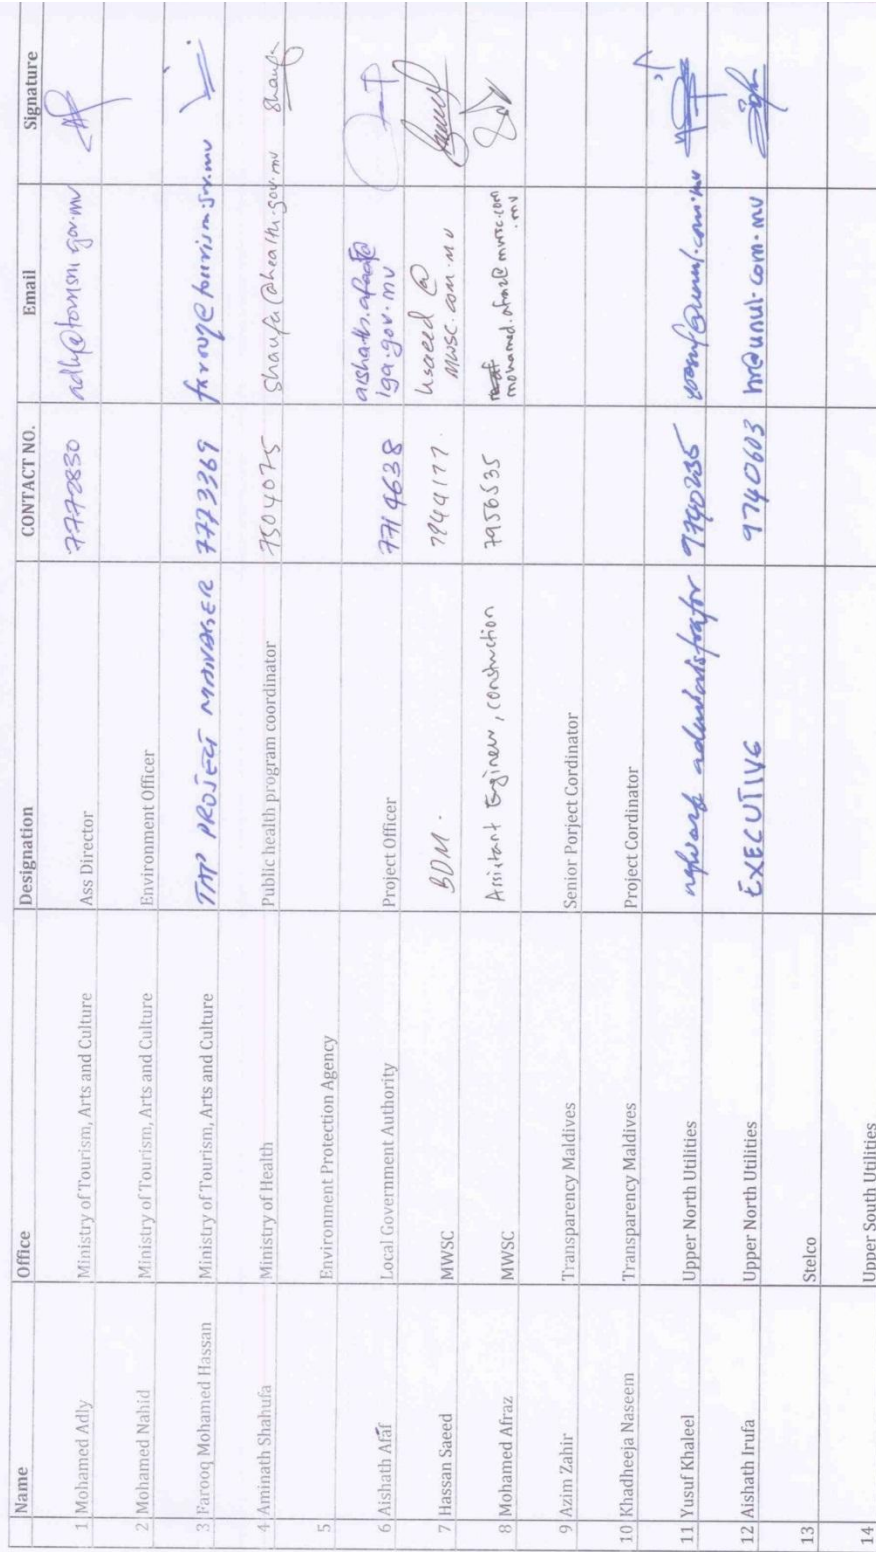 Name Office Designation CONTACT NO. Email Signature
1 Mohamed Adly Ministry of Tourism, Arts and Culture Ass Director 7772830
2 Mohamed Nahid Ministry of Tourism, Arts and Culture Environment Officer
3 Farooq Mohamed Hassan Ministry of Tourism, Arts and Culture TMP PROJECT MANAGER 7773369
4 Aminath Shahufa Ministry of Health Public health program coordinator 7504075 Shaufa@health.gov.mv
5 Environment Protection Agency
6 Aishath Afāf Local Government Authority Project Officer 7714638 aishath.afaaf@
lga.gov.mv
7 Hassan Saeed MWSC BDM. hsaeed @
mwsc.com.mv
8 Mohamed Afraz MWSC Assistant Engineer, construction 7956535 mohamed.afraz@mwsc.com
.mv
9 Azim Zahir Transparency Maldives Senior Porject Cordinator
10 Khadheeja Naseem Transparency Maldives Project Cordinator
11 Yusuf Khaleel Upper North Utilities administrator
12 Aishath Irufa Upper North Utilities EXECUTIVE 9740603 hr@unul.com.mv
13 Stelco
14 Upper South Utilities